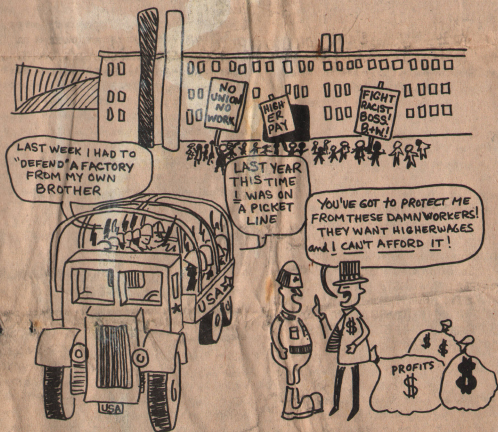 NO
UNION
NO
WORK
HIGH
ER
PAY
FIGHT
RACIST
BOSS'
LAST WEEK I HAD TO
"DEFEND" A FACTORY
FROM MY OWN
BROTHER
LAST YEAR
THIS TIME
I WAS ON
A PICKET
LINE
YOU'VE GOT TO PROTECT ME
FROM THESE DAMN WORKERS!
THEY WANT HIGHER WAGES
and I CAN'T AFFORD IT!
USA
USA
$
$ $
PROFITS
$
$